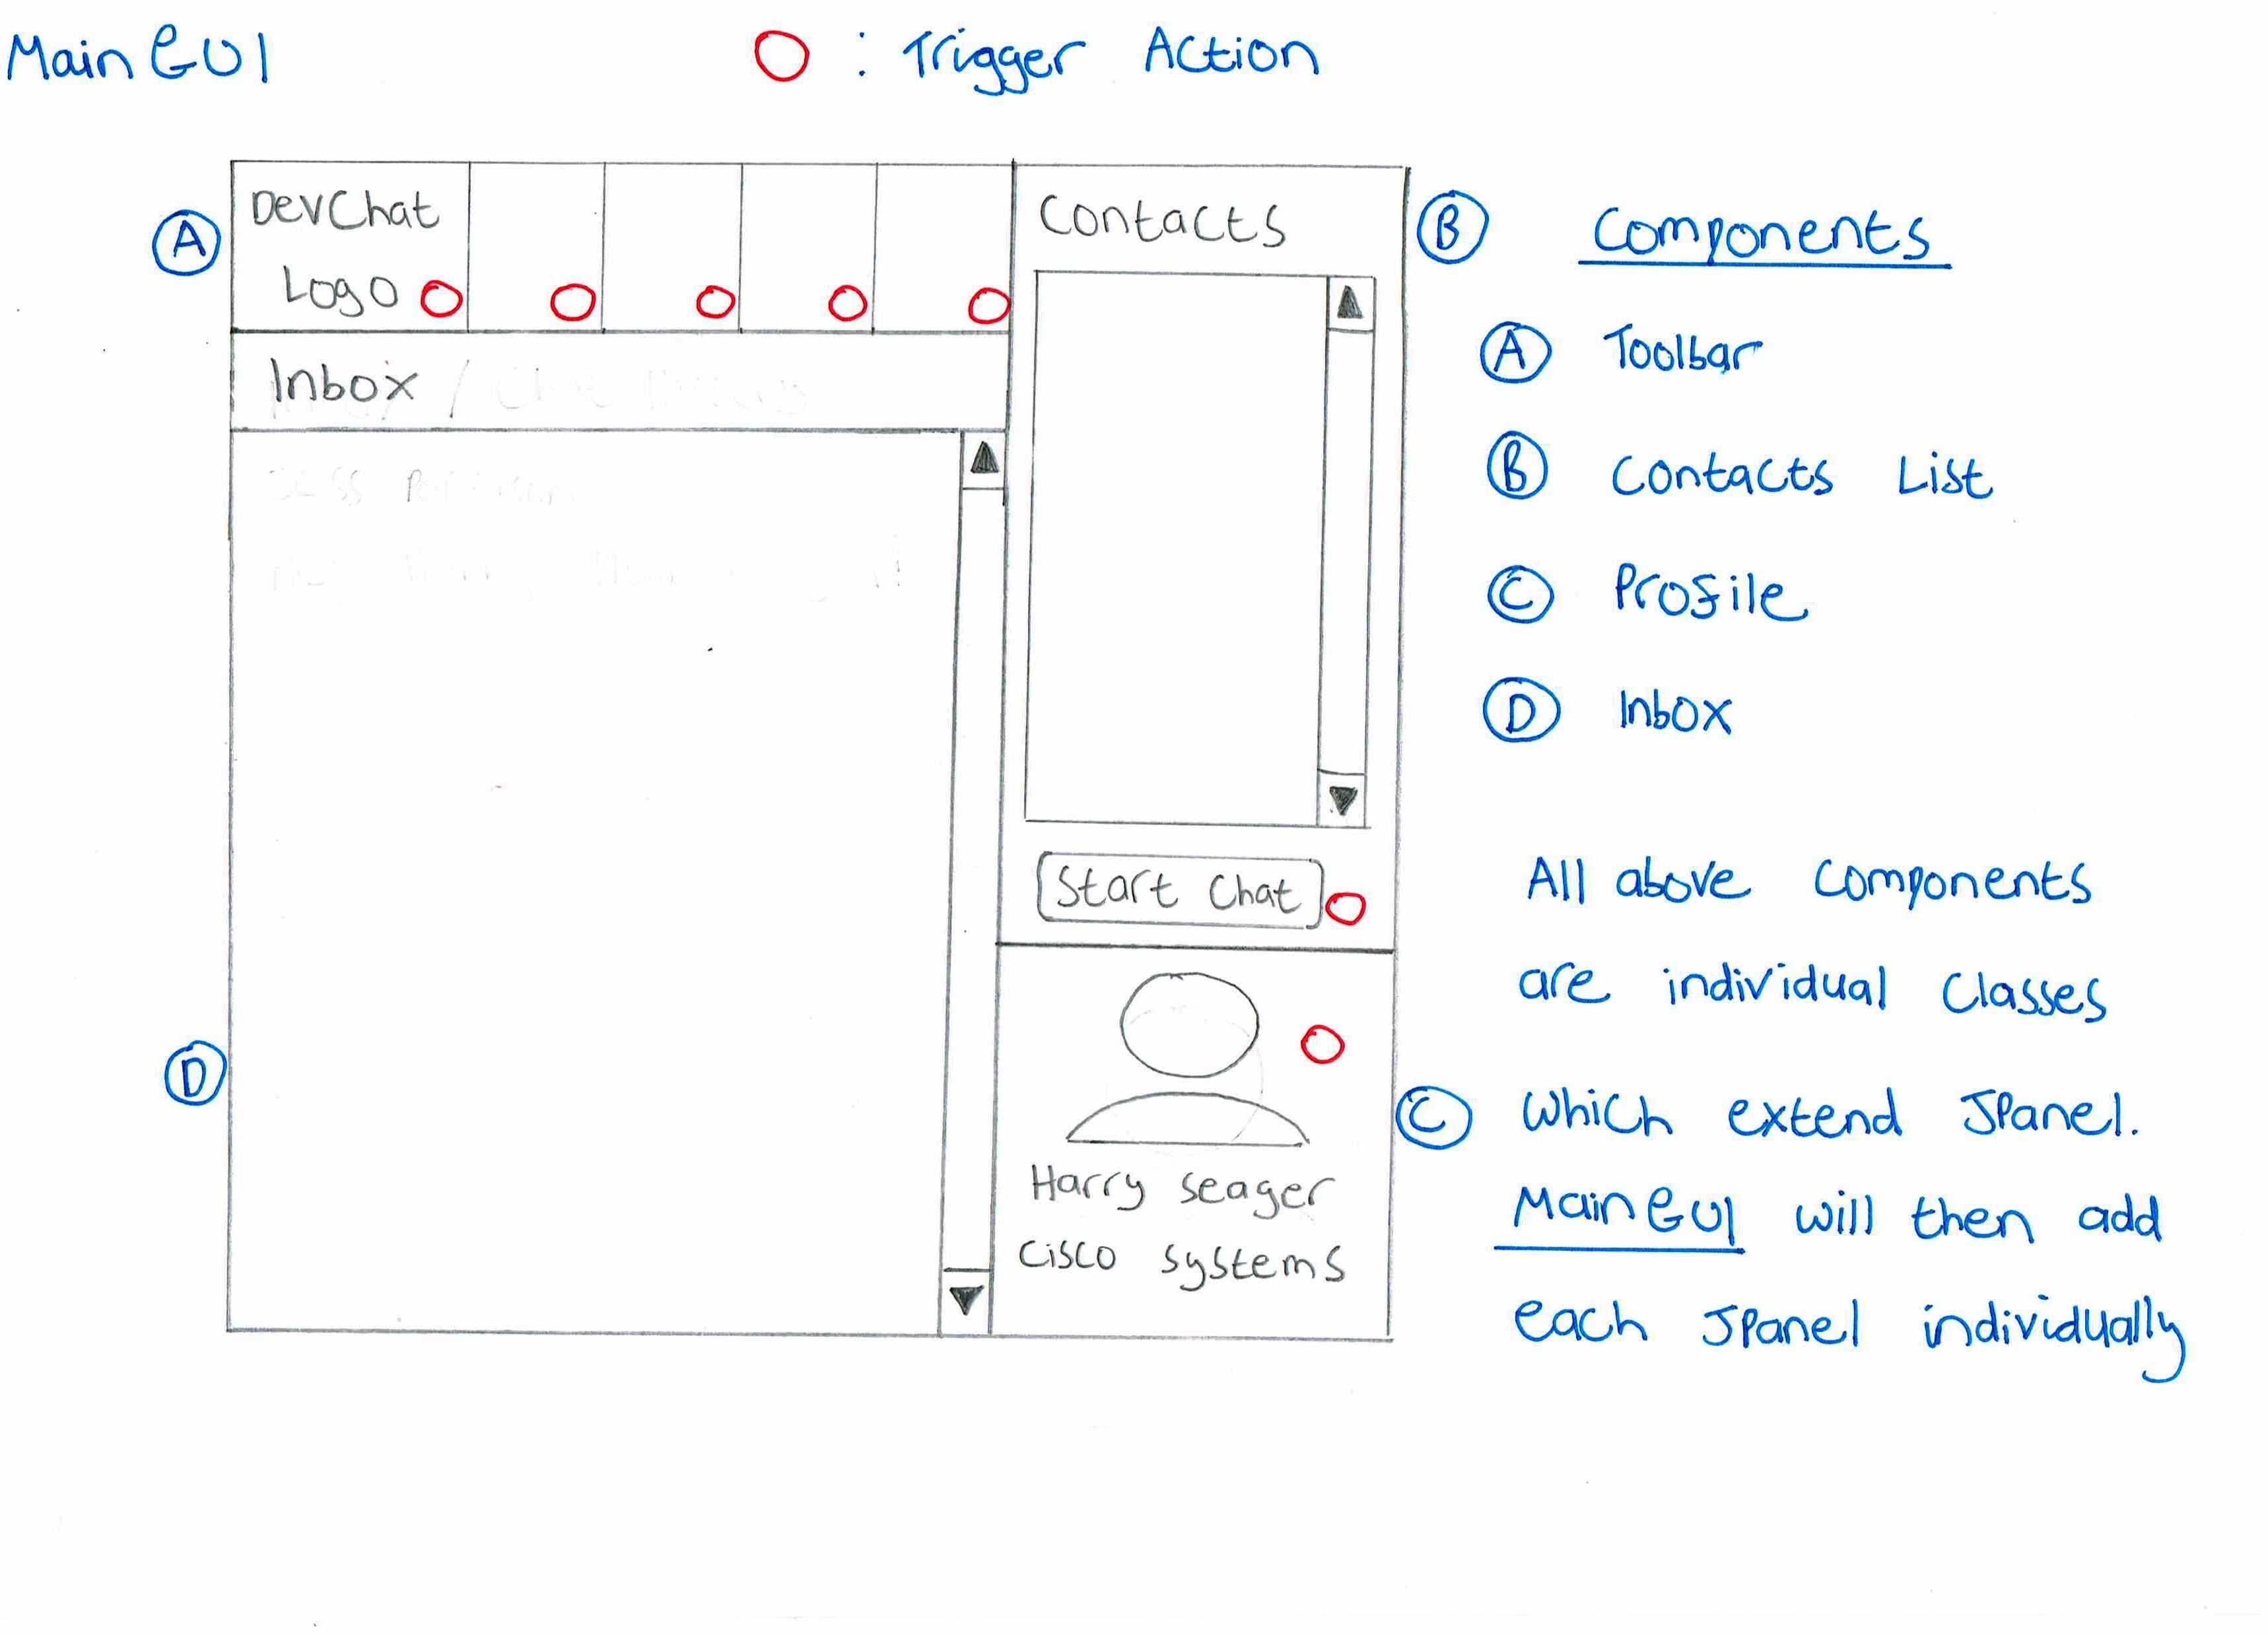 Main GUI
: Trigger Action
A
DevChat
Logo
Inbox /
D
Contacts
Start Chat
Harry Seager
Cisco Systems
B
C
Components
A Toolbar
B Contacts List
C Profile
D Inbox
All above Components
are individual Classes
Which extend JPanel.
Main GUI will then add
each JPanel individually